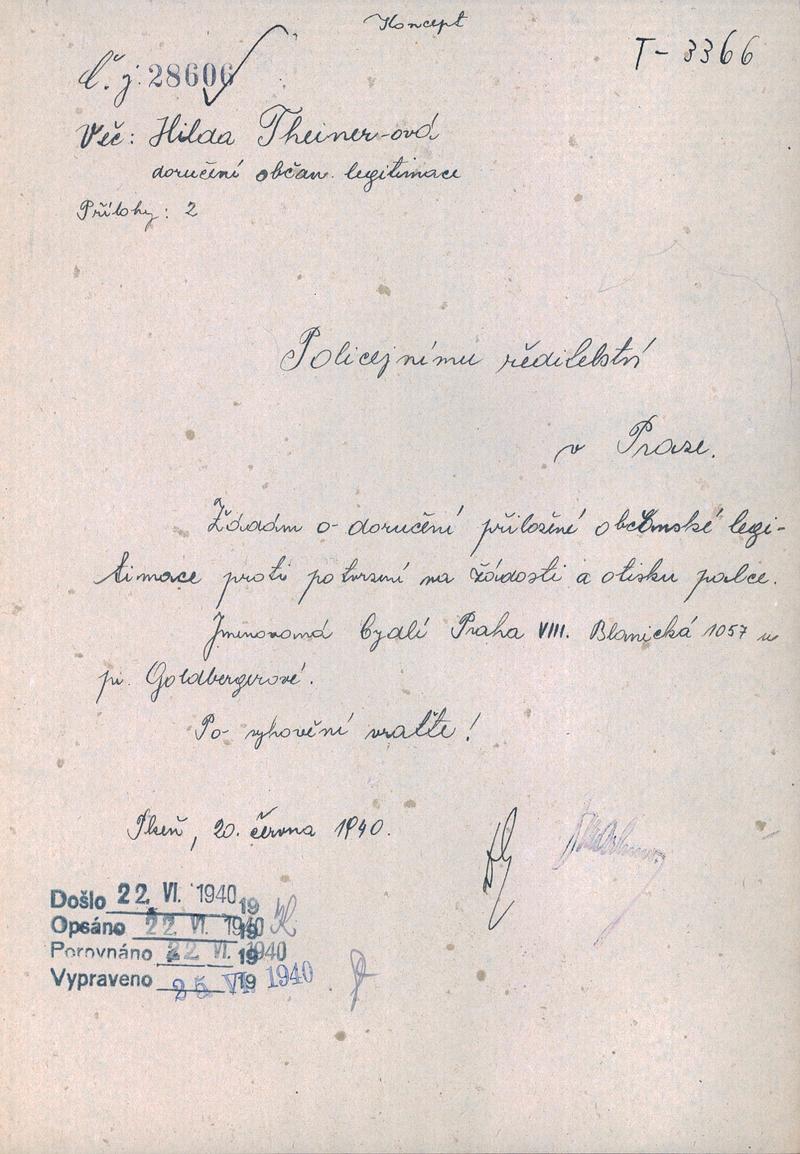 Koncept
T - 3366
Č. j. 28606
Věc: Hilda Theiner-ová
doručení občan. legitimace
Přílohy: 2
Policejnímu ředitelství
v Praze.
Žádám o doručení přiložené občanské legi-
timace proti potvrzení na žádosti a otisku palce.
Jmenovaná bydlí Praha VIII. Blanická 1057 u
pí. Goldbergerové.
Po vyhovění vraťte!
Plzeň, 20. června 1940.
Došlo 22. VI. 1940 19
Opsáno 22. VI. 1940 19
Porovnáno 22. VI. 1940 19
Vypraveno 25. VI. 1940 19